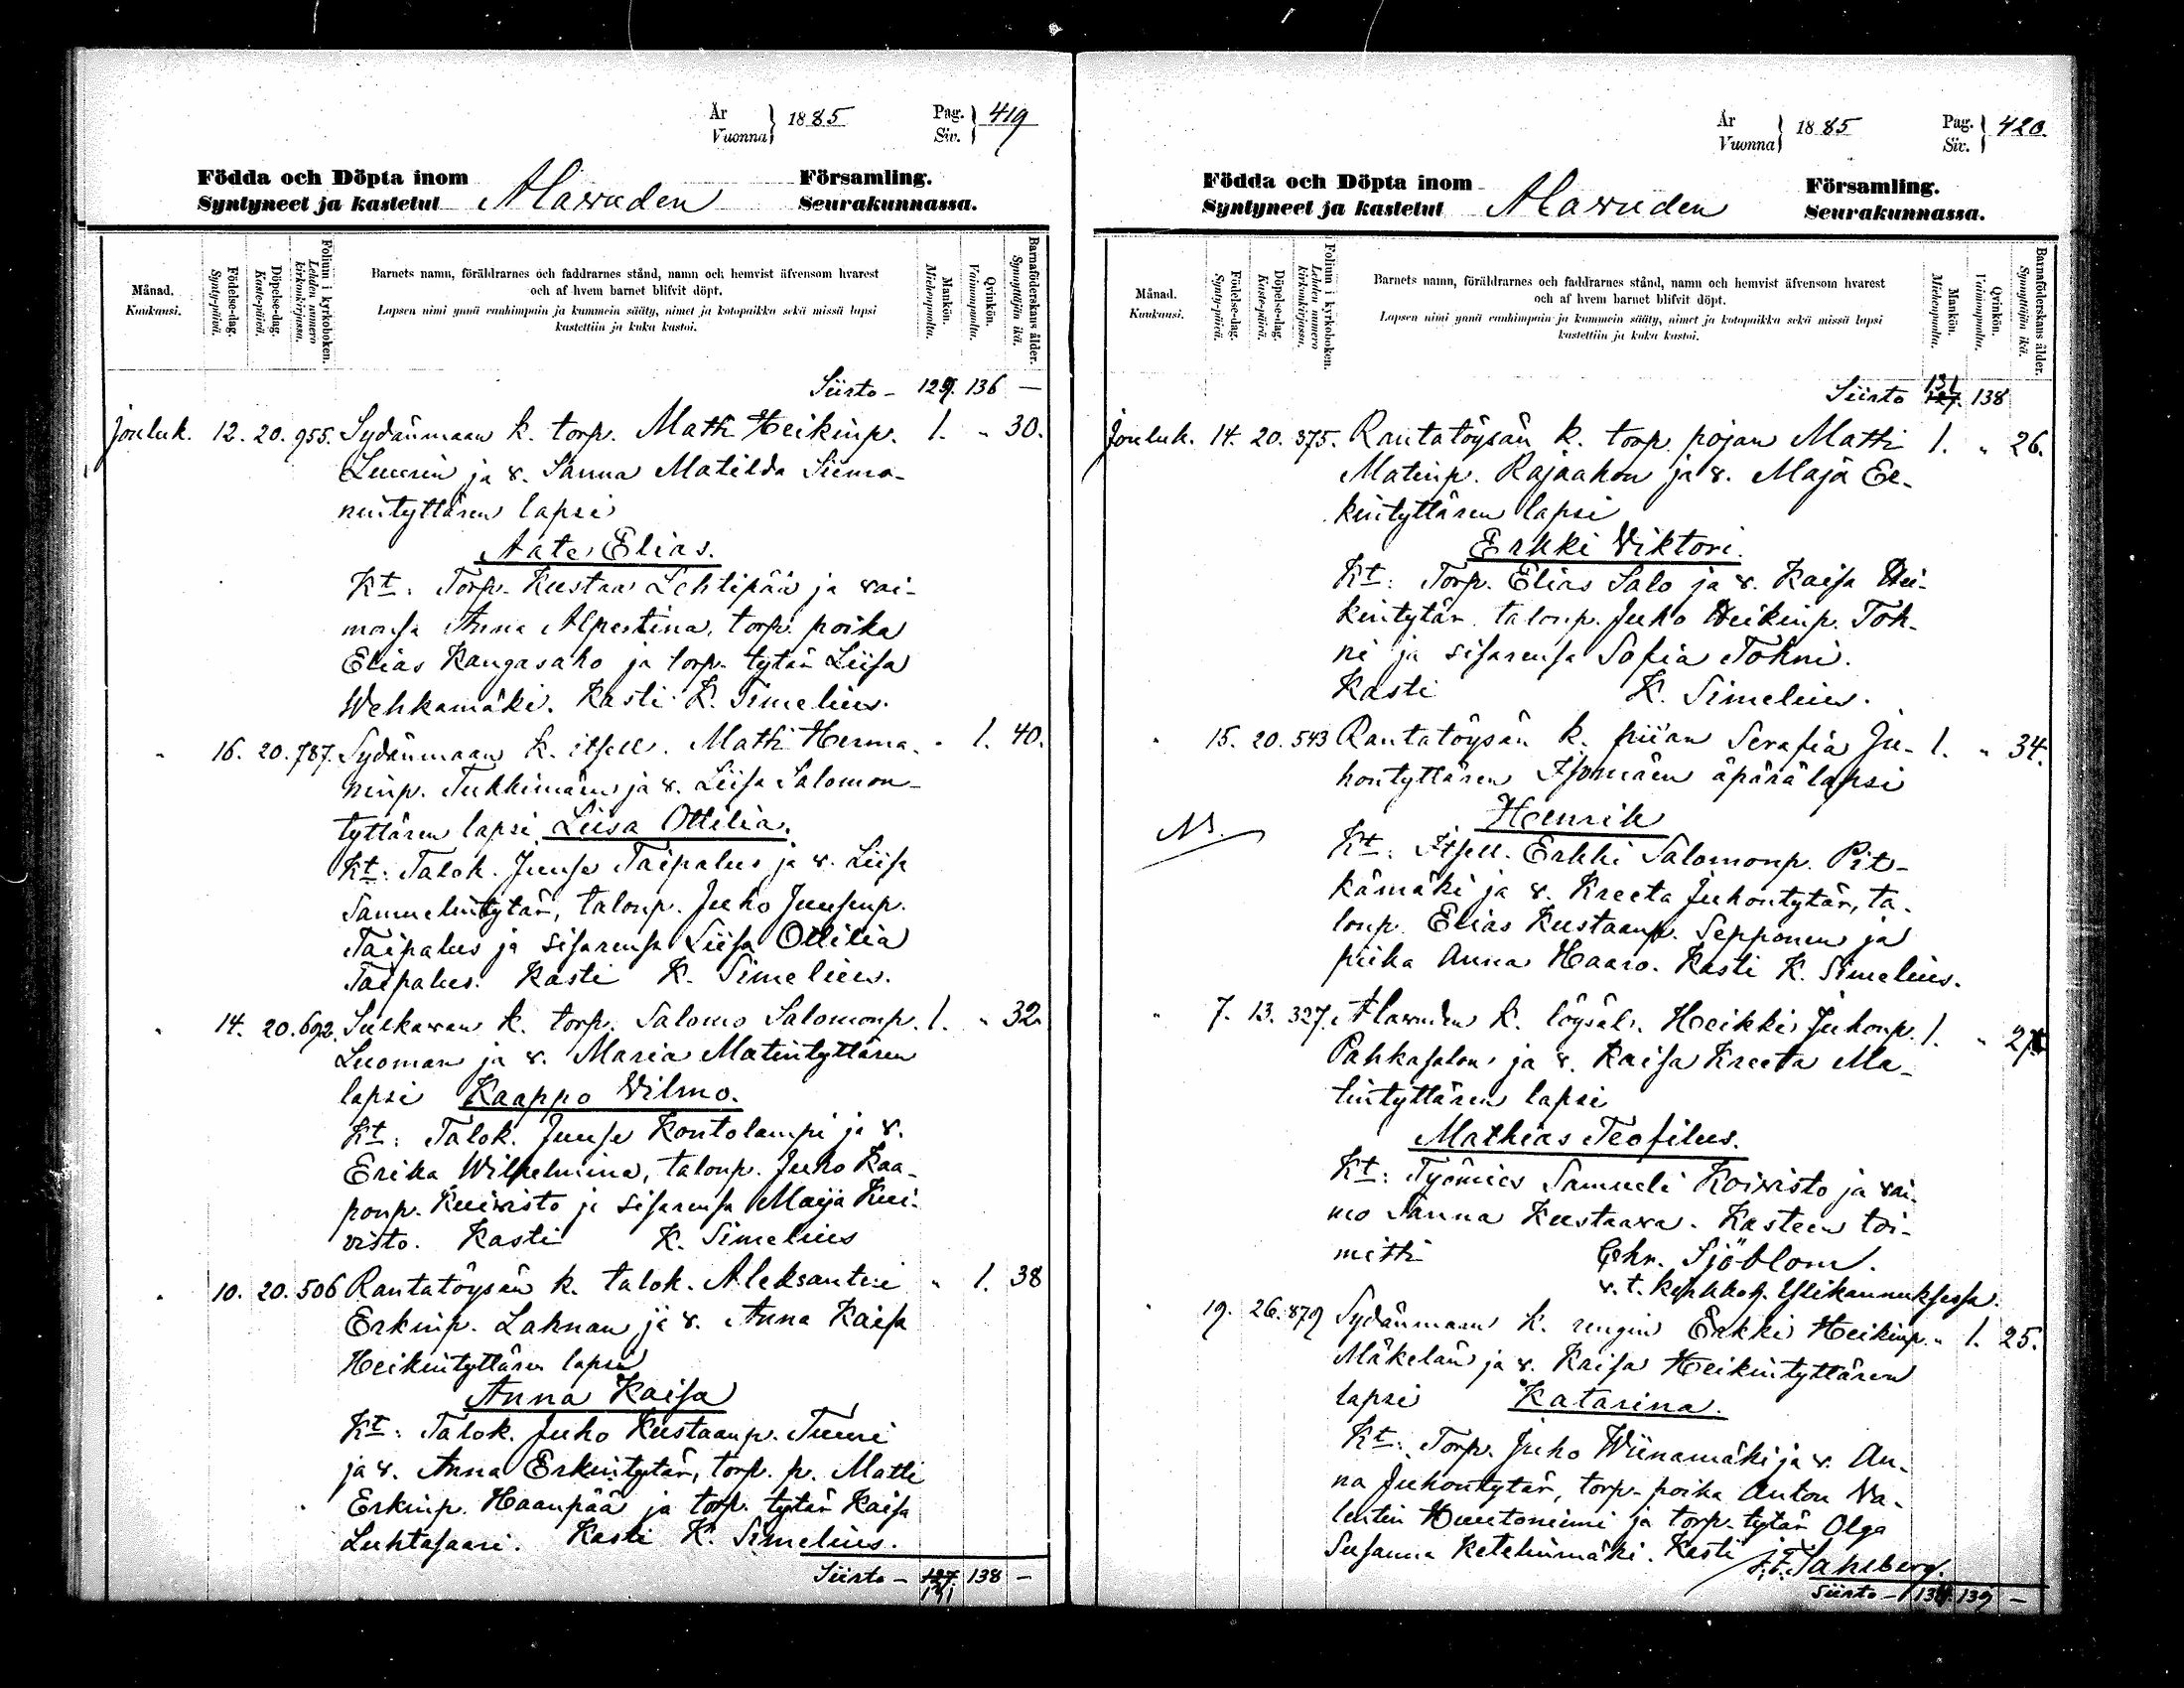 År
Vuonna
1885
Pag.
Siv.
419
Födda och Döpta inom
Syntyneet ja kastetut
Alavuden
Församling.
Seurakunnassa.
Månad.
Kuukausi.
Födelse-dag.
Synty-päivä.
Döpelse-dag.
Kaste-päivä.
Folium i kyrkoboken.
Lehden numero
kirkonkirjassa.
Barnets namn, föräldrarnes och faddrarnes stånd, namn och hemvist äfvensom hvarest
och af hvem barnet blifvit döpt.
Lapsen nimi ynnä vanhimpain ja kummein sääty, nimet ja kotopaikka sekä missä lapsi
kastettiin ja kuka kastoi.
Mankön.
Miehenpuolta.
Qvinkön.
Vaimonpuolta.
Barnaföderskans ålder.
Synnyttäjän ikä.
Siirto - 129. 136 -
Jouluk. 12. 20. 955. Sydänmaan k. torp. Matti Heikinp. 1. " 30.
ja v. Sanna Matilda Siimo-
nintyttären lapsi
Aate Elias.
Kt: Torp. Kustaa Lehtipää ja vai-
monsa Anna Alpertina, torp. poika
Elias Kangasaho ja torp. tytär Liisa
Wehkamäki. Kasti K. Simelius.
" 16. 20. 787. Sydänmaan k. itsell. Matti Herma- " 1. 40.
ninp. Tukkimäen ja v. Liisa Salomon-
tyttären lapsi Liisa Ottilia.
Kt: Talok. Juuse Taipalus ja v. Liisa
Samuelintytär, taloup. Juho Juusenp.
Taipalus ja sisarensa Liisa Ottilia
Taipalus. Kasti K. Simelius.
" 14. 20. 692. Sulkavan k. torp. Salomo Salomonp. 1. " 32.
Luoman ja v. Maria Matintyttären
lapsi Kaappo Wilmo.
Kt: Talok. Juuse Kontolampi ja v.
Erika Wilhelmina, taloup. Juho Kaa-
ponp. Kuivisto ja sisarensa Maija Kui-
visto. Kasti K. Simelius
" 10. 20. 506 Rantatöysän k. talok. Aleksanteri " 1. 38
Erkinp. Lahnan ja v. Anna Kaisa
Heikintyttären lapsi
Anna Kaisa
Kt: Talok. Juho Kustaanp. Tuuri
ja v. Anna Erkintytär, torp. p. Matti
Erkinp. Haanpää ja torp. tytär Kaisa
Luhtasaari. Kasti K. Simelius.
Siirto - 127. 138 -
131
År
Vuonna
1885
Pag.
Siv.
420.
Födda och Döpta inom
Syntyneet ja kastetut
Alavuden
Församling.
Seurakunnassa.
Månad.
Kuukausi.
Födelse-dag.
Synty-päivä.
Döpelse-dag.
Kaste-päivä.
Folium i kyrkoboken.
Lehden numero
kirkonkirjassa.
Barnets namn, föräldrarnes och faddrarnes stånd, namn och hemvist äfvensom hvarest
och af hvem barnet blifvit döpt.
Lapsen nimi ynnä vanhimpain ja kummein sääty, nimet ja kotopaikka sekä missä lapsi
kastettiin ja kuka kastoi.
Mankön.
Miehenpuolta.
Qvinkön.
Vaimonpuolta.
Barnaföderskans ålder.
Synnyttäjän ikä.
131
Siirto 127. 138
Jouluk. 14. 20. 375. Rantatöysän k. torp. pojan Matti 1. " 26.
Matinp. Rajaahon ja v. Maja Ee-
kintyttären lapsi
Erkki Viktori.
Kt: Torp. Elias Salo ja v. Kaisa Hei-
kintytär, taloup. Juho Heikinp. Toh-
ni ja sisarensa Sofia Tohni.
Kasti K. Simelius.
" 15. 20. 543 Rantatöysän k. piian Serafia Ju- 1. " 34.
hontyttären Isomäen äpärälapsi
Henrik
Kt: Itsell. Erkki Salomonp. Pit-
kämäki ja v. Kreeta Juhontytär, ta-
loup. Elias Kustaanp. Sepponen ja
piika Anna Haaro. Kasti K. Simelius.
" 7. 13. 327. Alavuden k. löysäl. Heikki Juhonp. 1. "
Pahkasalon ja v. Kaisa Kreeta Ma-
tintyttären lapsi
Mathias Teofilus.
Kt: Työmies Samueli Koivisto ja vai-
mo Sanna Kustaava. Kasteen toi-
mitti Chr. Sjöblom.
v. t. Ylikannuksessa.
" 19. 26. 879 Sydänmaan k. rengin Erkki Heikinp. " 1. 25.
Mäkelän ja v. Kaisa Heikintyttären
lapsi Katarina.
Kt: Torp. Juho Wiinamäki ja v. An-
na Juhontytär, torp. poika Anton Va-
lentin Huutoniemi ja torp. tytär Olga
Susanna Ketelinmäki. Kasti J. F. Sahlberg.
Siirto - 134. 139 -